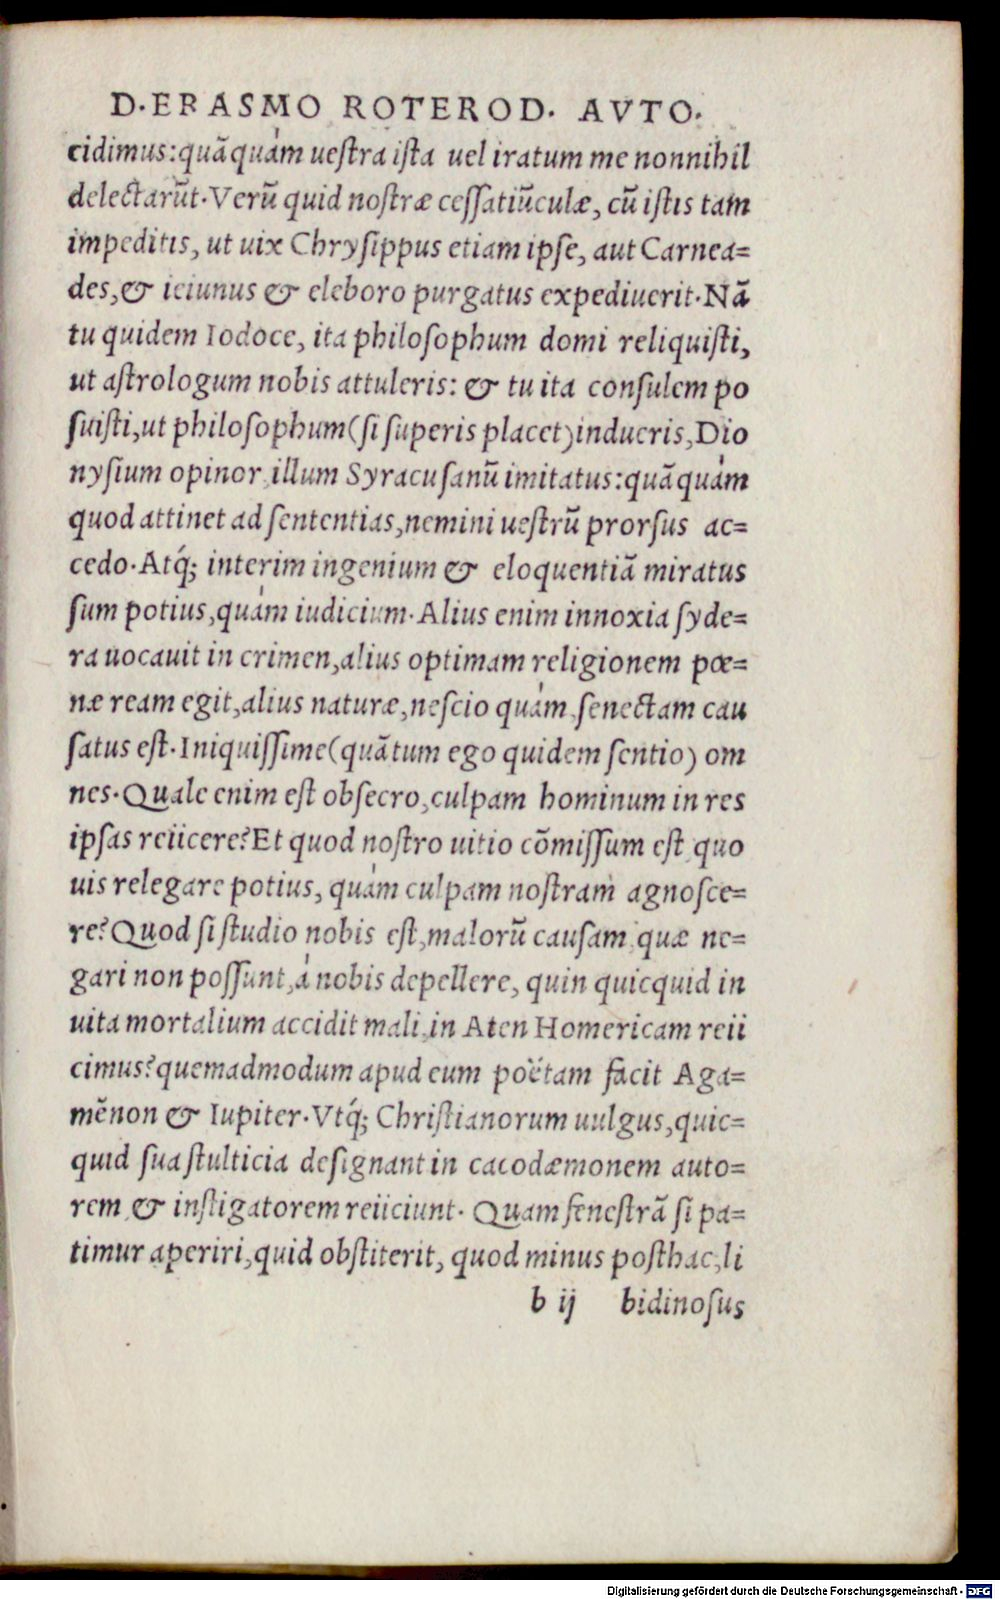 D. ERASMO ROTEROD. AVTO.
cidimus: quãquàm uestra ista uel iratum me nonnihil
delectarũt. Verũ quid nostræ cessatiũculæ, cũ istis tam
impeditis, ut uix Chrysippus etiam ipse, aut Carnea=
des, & ieiunus & eleboro purgatus expediuerit. Nã
tu quidem Iodoce, ita philosophum domi reliquisti,
ut astrologum nobis attuleris: & tu ita consulem po
suisti, ut philosophum (si superis placet) indueris, Dio
nysium opinor illum Syracusanũ imitatus: quãquàm
quod attinet ad sententias, nemini uestrũ prorsus ac=
cedo. Atq́; interim ingenium & eloquentiã miratus
sum potius, quàm iudicium. Alius enim innoxia syde=
ra uocauit in crimen, alius optimam religionem pœ=
næ ream egit, alius naturæ, nescio quàm, senectam cau
satus est. Iniquissime (quãtum ego quidem sentio) om
nes. Quale enim est obsecro, culpam hominum in res
ipsas reiicere? Et quod nostro uitio cõmissum est quo
uis relegare potius, quàm culpam nostram agnosce=
re? Quod si studio nobis est, malorũ causam quæ ne=
gari non possunt, à nobis depellere, quin quicquid in
uita mortalium accidit mali, in Aten Homericam reii
cimus? quemadmodum apud eum poëtam facit Aga=
mẽnon & Iupiter. Vtq́; Christianorum uulgus, quic=
quid sua stulticia designant in cacodæmonem auto=
rem & instigatorem reiiciunt. Quam fenestrã si pa=
timur aperiri, quid obstiterit, quod minus posthac, li
b ij bidinosus
Digitalisierung gefördert durch die Deutsche Forschungsgemeinschaft - DFG